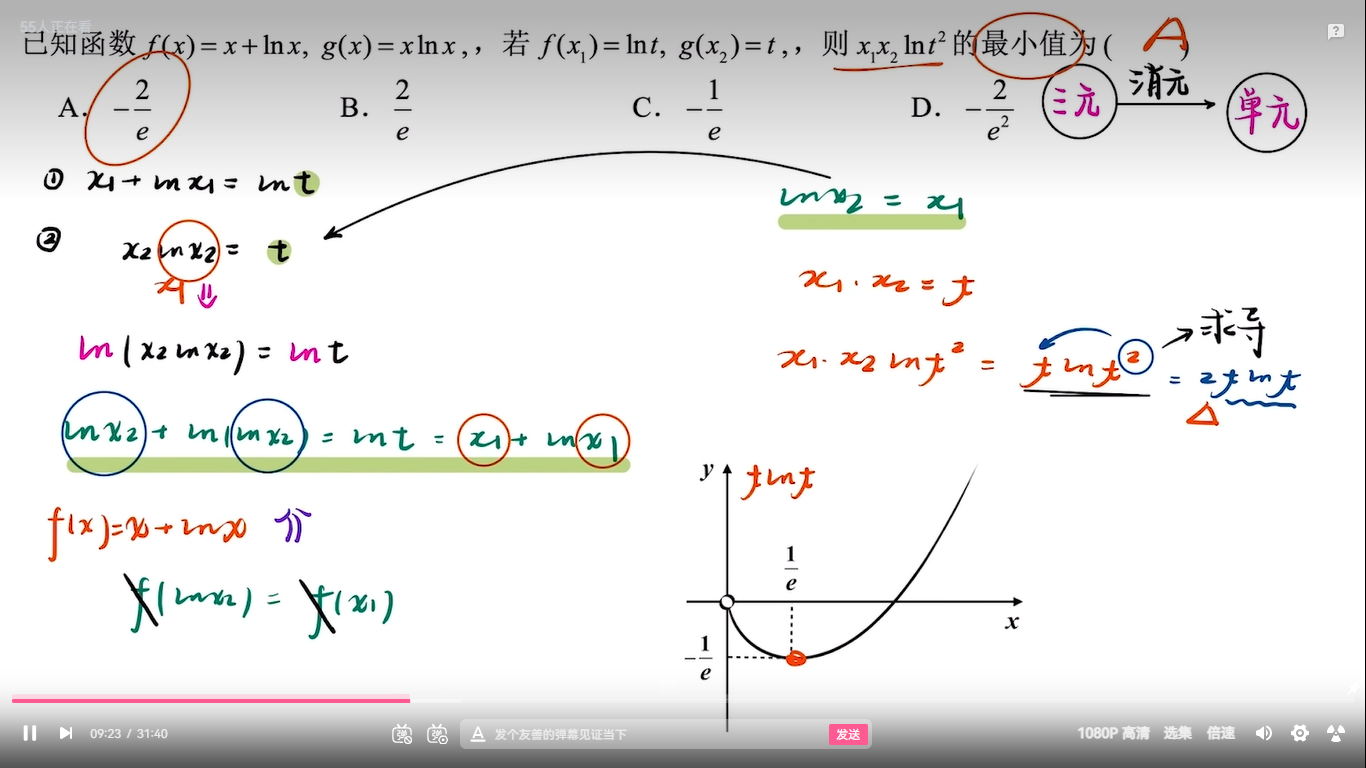 55人正在看
已知函数 f(x)=x+lnx, g(x)=xlnx,, 若 f(x₁)=lnt, g(x₂)=t,, 则 x₁x₂lnt² 的最小值为( A )
A. -2/e B. 2/e C. -1/e D. -2/e² 三元 消元 单元
① x₁+lnx₁=lnt
lnx₂=x₁
② x₂lnx₂=t
x₁ ⇓
x₁·x₂=t
ln(x₂lnx₂)=lnt
x₁·x₂lnt²=tlnt² 求导
=2tlnt
△
lnx₂+ln(lnx₂)=lnt=x₁+lnx₁
y tlnt
f(x)=x+lnx
1/e
f(lnx₂)=f(x₁)
x
-1/e
09:23 / 31:40 弹 弹 A 发个友善的弹幕见证当下 发送 1080P 高清 选集 倍速